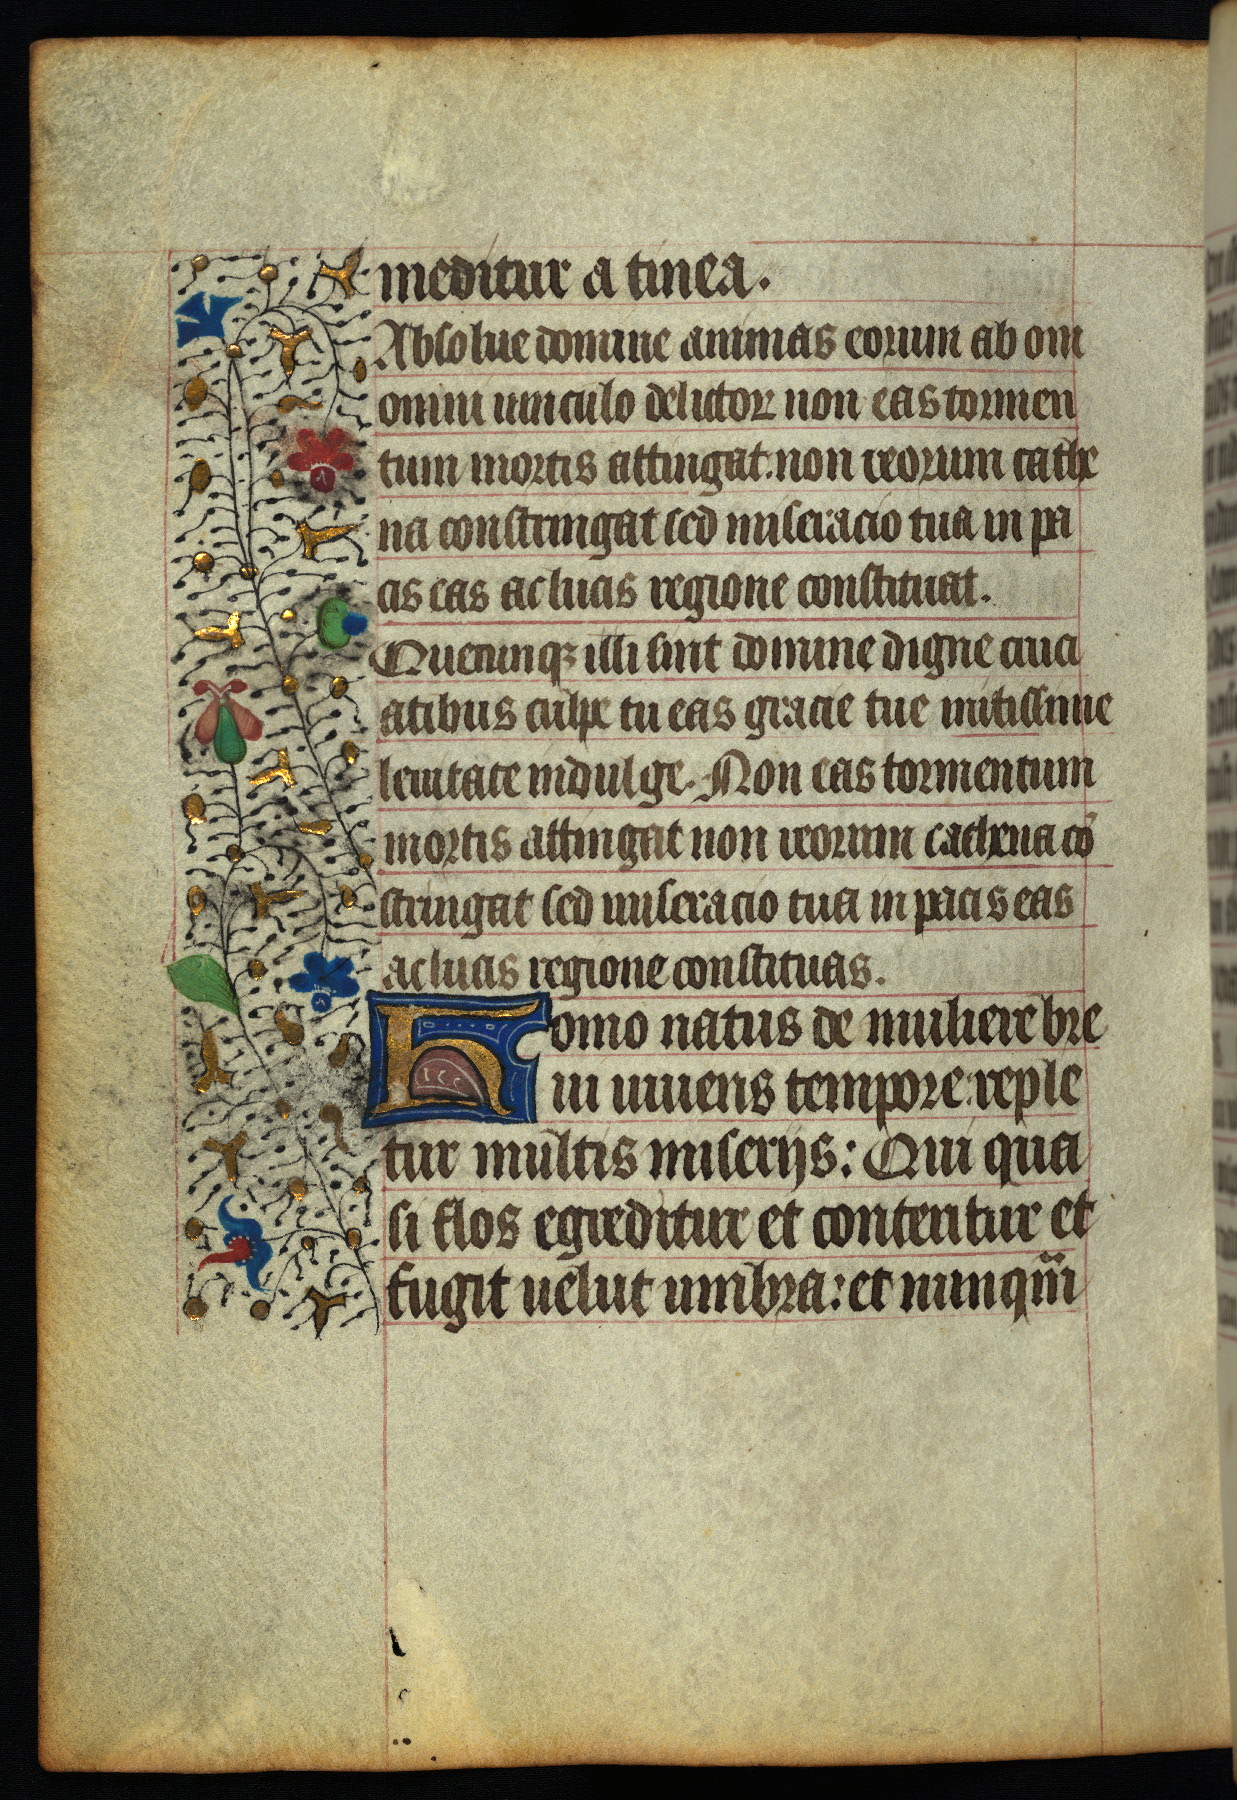 meditur a tinea.
Absolue domine animas eorum ab om
omni uinculo delictoꝝ non eas tormen
tum mortis attingat: non reorum cathe
na constringat sed miseracio tua in pa
cis eas ac lucis regione constituat.
Quecunqꝫ illi sint domine digne cruci
atibus culpe tu eas gracie tue mitissime
lenitate indulge. Non eas tormentum
mortis attingat non reorum cathena cō
stringat sed miseracio tua in pacis eas
ac lucis regione constituas.
Homo natus de muliere bre
ui uiuens tempore: reple
tur multis miserijs: Qui qua
si flos egreditur et conteritur et
fugit uelut umbra: et nunqm̄